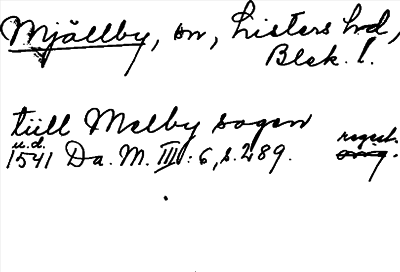 Mjällby, sn, Listers hd,
Blek. l.
tiill Melby sogen
u.d. regist.
1541 Da. M. III: 6, s. 289. orig.